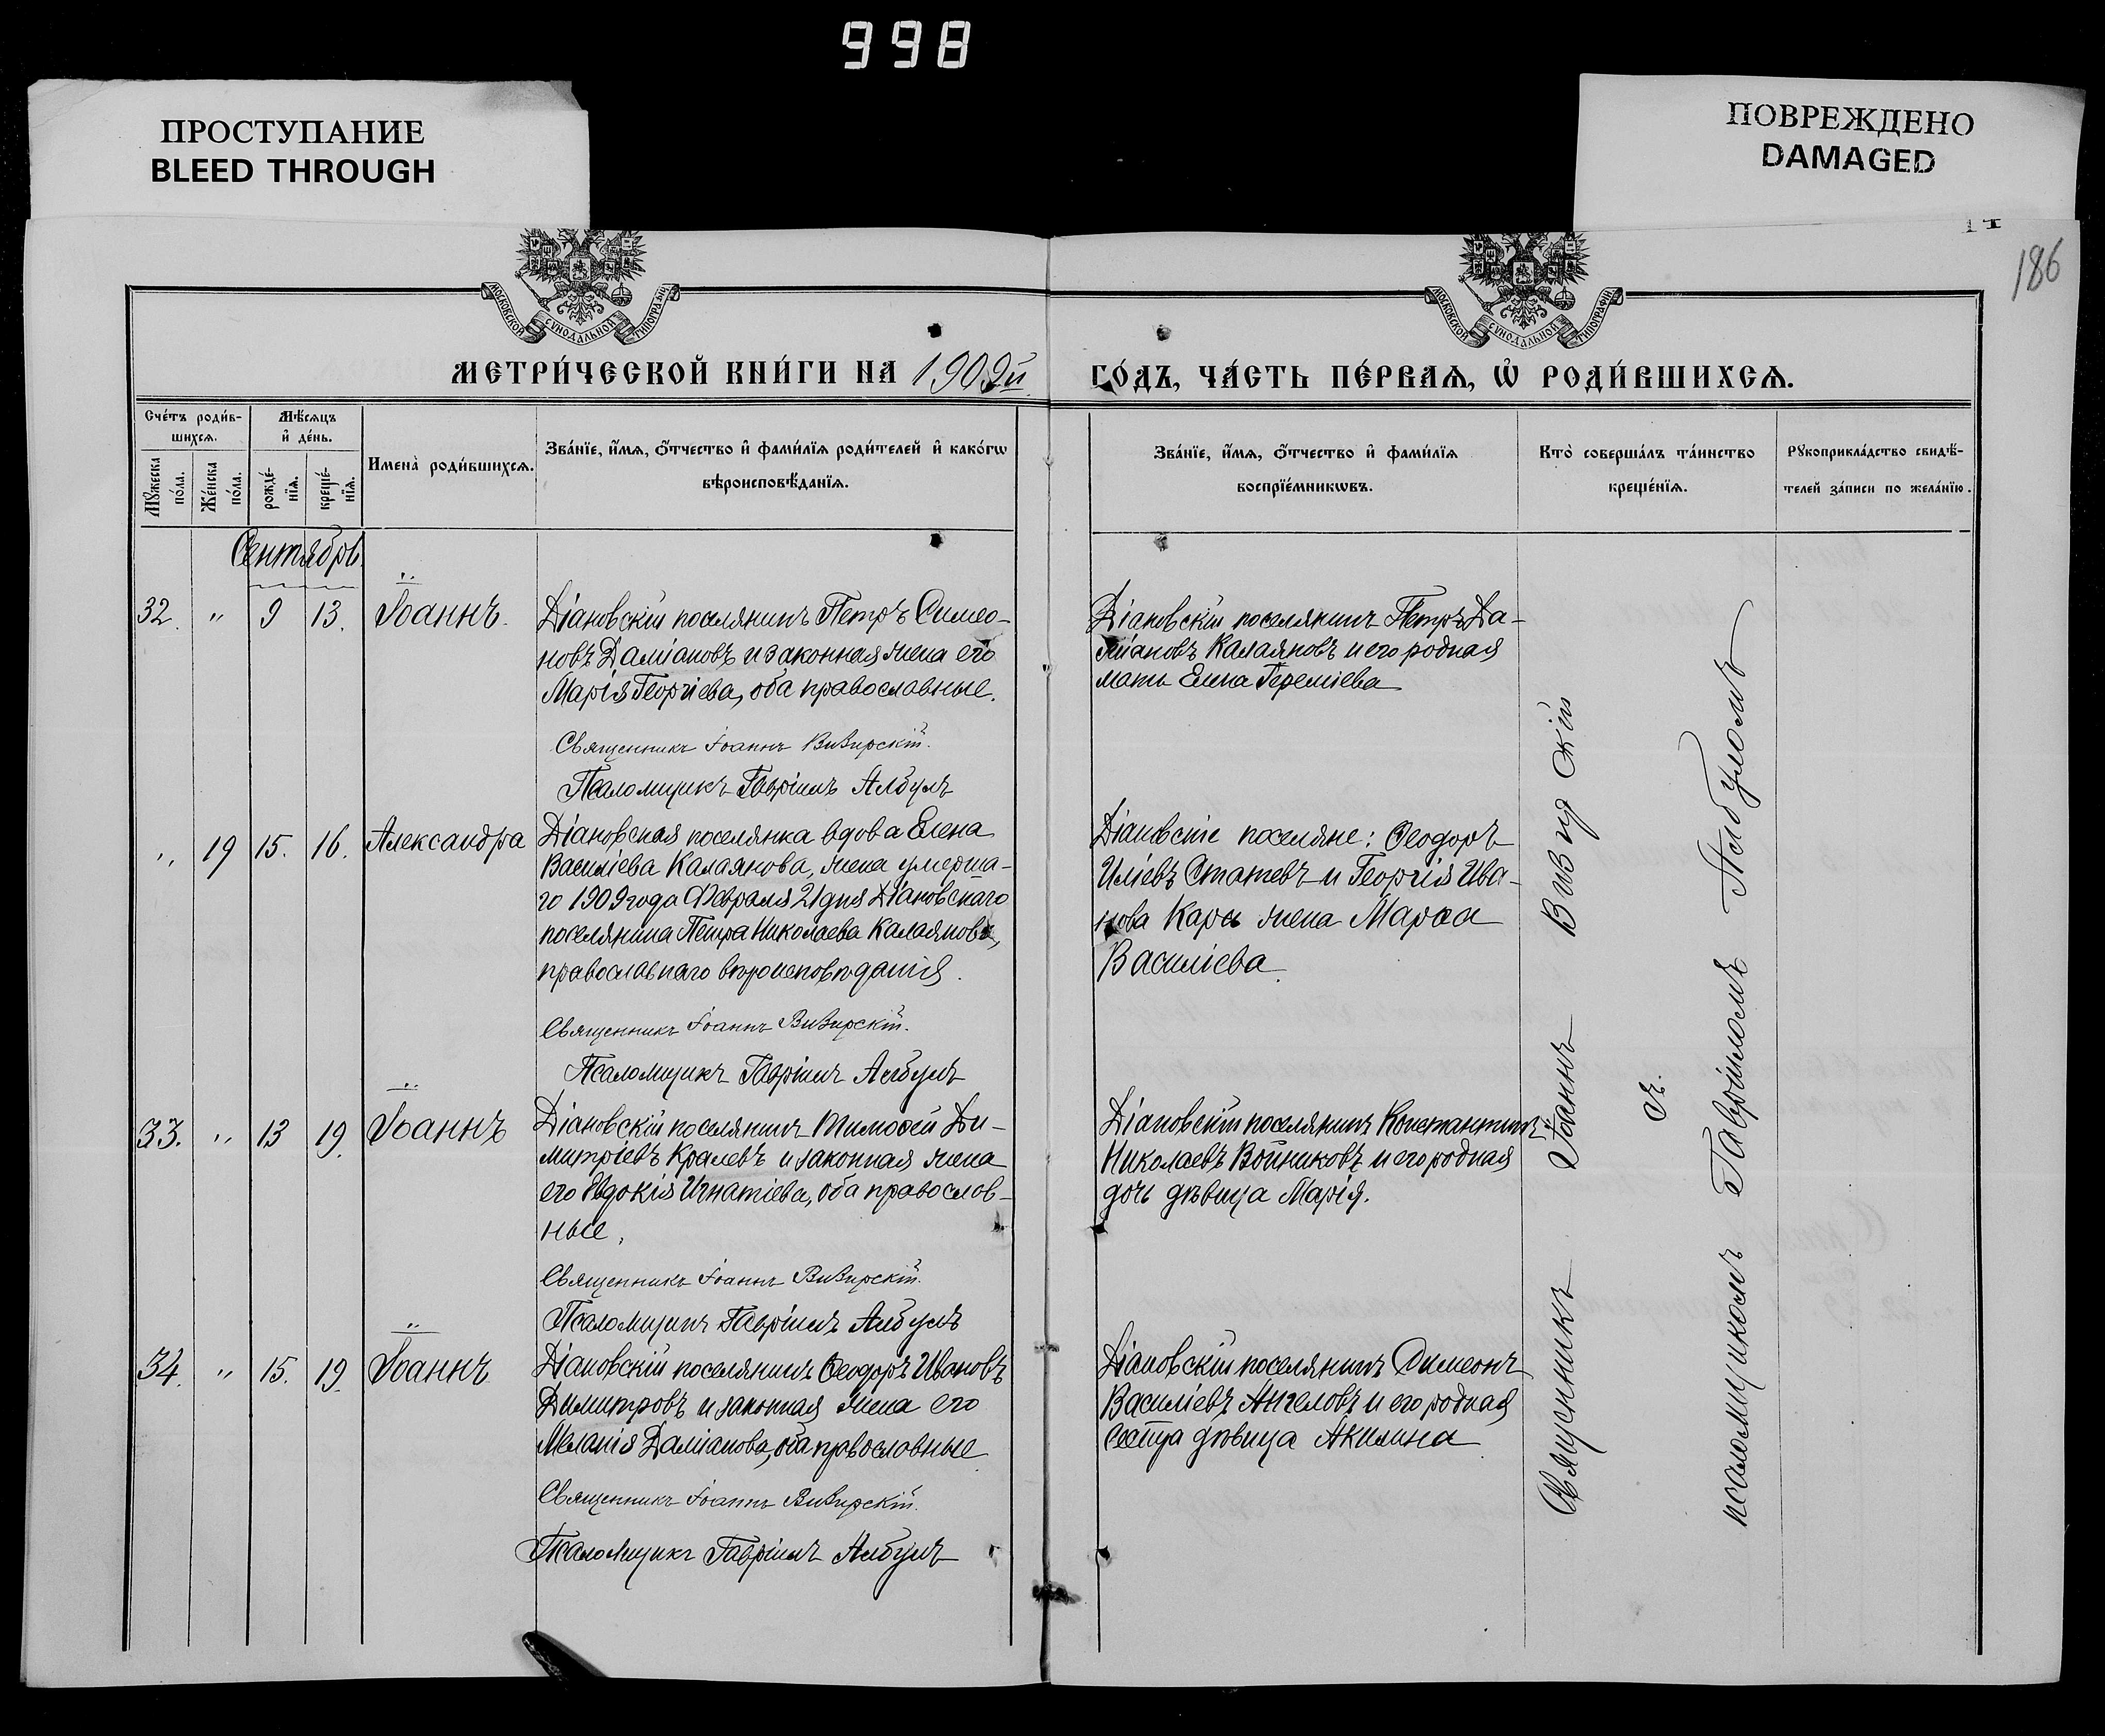 998
ПРОСТУПАНИЕ
BLEED THROUGH
ПОВРЕЖДЕНО
DAMAGED
14
186
МОСКОВСКОЙ СѴНОДАЛЬНОЙ ТИПОГРАФІИ
МОСКОВСКОЙ СѴНОДАЛЬНОЙ ТИПОГРАФІИ
МЕТРИ́ЧЕСКОЙ КНИ́ГИ НА 1909й
ГО́ДЪ, ЧА́СТЬ ПЕ́РВАѦ, Ѡ҆ РОДИ́ВШИХСѦ.
Сче́тъ роди́в-
шихсѧ.
Мꙋжеска
по́ла.
Же́нска
по́ла.
Мѣ́сѧцъ
и҆ де́нь.
рожде́-
нїѧ.
креще́-
нїѧ.
Имена̀ роди́вшихсѧ.
Зва́нїе, и҆́мѧ, ѻ҆́тчество и҆ фами́лїѧ роди́телей и҆ како́гѡ
вѣроисповѣ́данїѧ.
Зва́нїе, и҆́мѧ, ѻ҆́тчество и҆ фами́лїѧ
воспрїе́мникѡвъ.
Кто̀ соверша́лъ та́инство
креще́нїѧ.
Рꙋкоприкла́дство свидѣ́-
телей за́писи по жела́нїю.
Сентябрь.
32. " 9 13. Іоаннъ.
Діановскій поселянинъ Петръ Симео-
новъ Даміановъ и законная жена его
Марія Георгіева, оба православные.
Священникъ Іоаннъ Вивирскій.
Псаломщикъ Гавріилъ Албулъ
Діановскій поселянинъ Петръ Да-
міановъ Калаяновъ и его родная
мать Елена Гереміева
" 19 15. 16. Александра
Діановская поселянка вдова Елена
Василіева Калаянова, жена умерша-
го 1909 года Февраля 21 дня Діановскаго
поселянина Петра Николаева Калаянова,
православнаго вѣроисповѣданія.
Священникъ Іоаннъ Вивирскій.
Псаломщикъ Гавріилъ Албулъ
Діановскіе поселяне: Ѳеодоръ
Иліевъ Статевъ и Георгія Ива-
нова Кара жена Марѳа
Василіева.
33. " 13 19. Іоаннъ
Діановскій поселянинъ Тимоѳей Ди-
митріевъ Кралевъ и законная жена
его Евдокія Игнатіева, оба православ-
ные.
Священникъ Іоаннъ Вивирскій.
Псаломщикъ Гавріилъ Албулъ
Діановскій поселянинъ Константинъ
Николаевъ Войниковъ и его родная
дочь дѣвица Марія.
34. " 15. 19. Іоаннъ
Діановскій поселянинъ Ѳеодоръ Ивановъ
Димитровъ и законная жена его
Меланія Даміанова, оба православные
Священникъ Іоаннъ Вивирскій.
Псаломщикъ Гавріилъ Албулъ
Діановскій поселянинъ Симеонъ
Василіевъ Ангеловъ и его родная
сестра дѣвица Акилина
Священникъ Іоаннъ Вивирскій
съ
псаломщикомъ Гавріиломъ Албуломъ